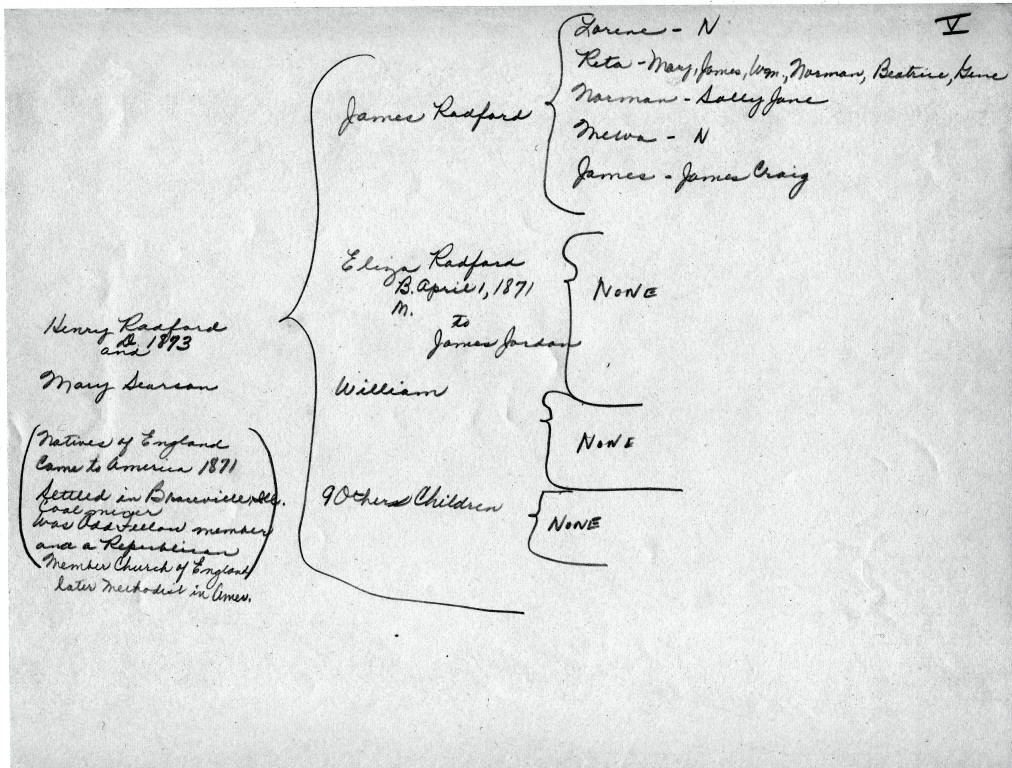 V
Lorene - N
Reta - Mary, James, Wm., Norman, Beatrice, Gene
Norman - Sally Jane
Melva - N
James - James Craig
James Radford
Eliza Radford
B. April 1, 1871
M.
to
James Jordan
NONE
William
NONE
9 Others Children
NONE
Henry Radford
D. 1873
and
Mary Searson
Natives of England
Came to America 1871
Settled in Braceville, Ill.
Coal miner
Was Oddfellow member
and a Republican
Member Church of England
later Methodist in Amer.